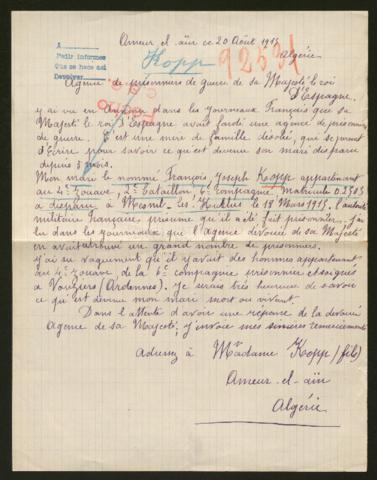 Ameur el aïn ce 20 Août 1915
A
Pedir informes
Que se hace así
Devolver
Kopp
92531
Algérie
Agence de prisonniers de guerre de sa Majesté le roi
d'Espagne.
y ai vu en dans les journeaux Français que sa
Majesté le roi d'Espagne avait fondé une agence de prisonniers
de guerre, c'est une mère de famille désolé, qui se permet
d'Ecrire pour savoir ce qu'est devenue son mari disparu
depuis 5 mois.
Mon mari le nommé François Joseph Kopp appartenant
au 4e zouave, 2e bataillon, 6e compagnie, Matricule
a disparu à Mesnil-les-Hurlus le 18 Mars 1915. l'autorité
militaire Française, présume qu'il a été fait prisonnier. j'ai
lu dans les journaux qui l'Agence dévouée de sa Majesté
en avait retrouvé un grand nombre de prisonniers.
j'ai su vaguement qu'il y avait des hommes appartenant
au 4e zouave de la 6e compagnie prisonnier
à Vouziers (Ardennes). Je serais très heureuse de savoir
ce qu'est devenue mon mari mort ou vivant.
Dans l'attente d'avoir une réponse de la dévouée
Agence de sa Majesté, j'envoie mes sincères remerciements
Adressez à Madame Kopp (fils)
Ameur-el-aïn
Algérie